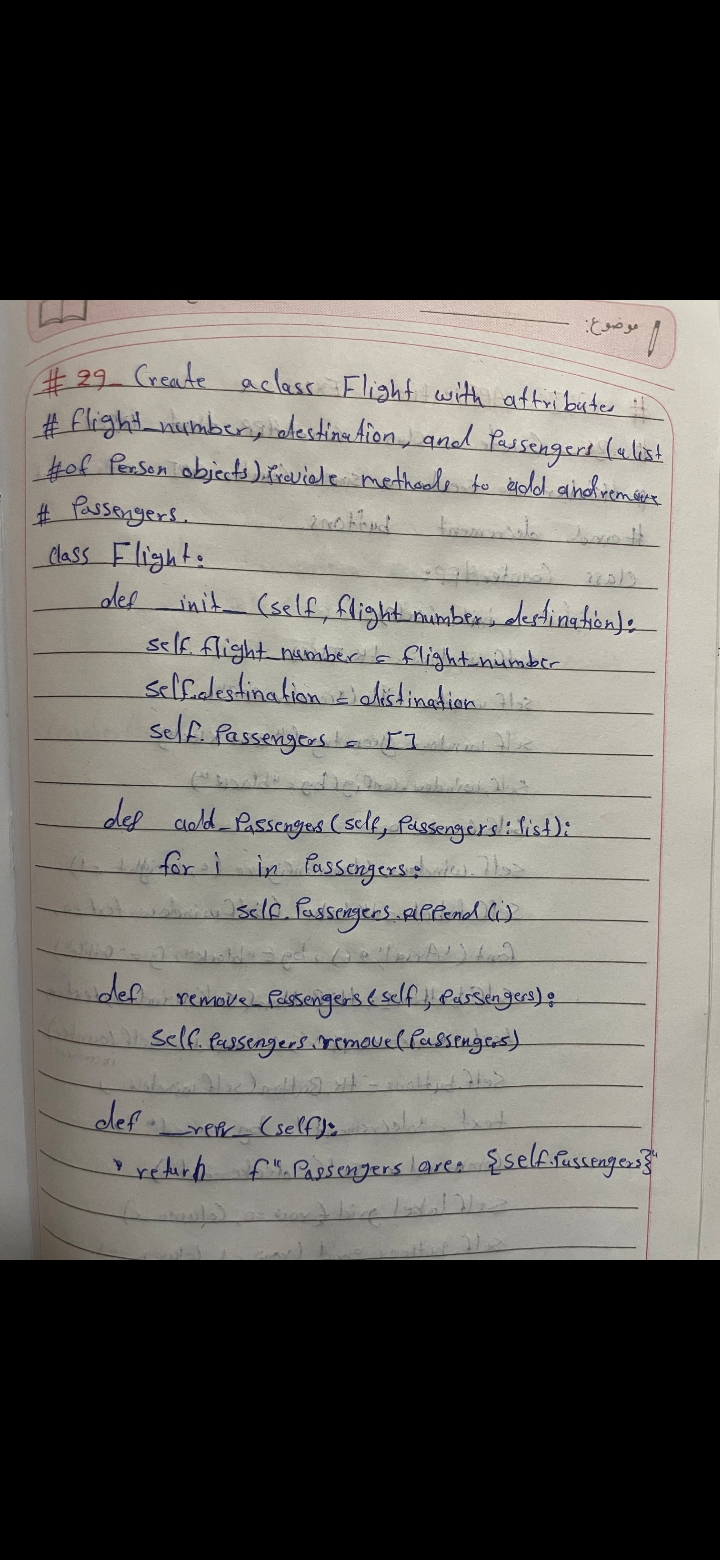 موضوع:
# 29_ Create a class Flight with attributes
# flight_number, destination, and Passengers (a list
# of Person objects). Provide methods to add and remove
# Passengers.
class Flight:
def __init__ (self, flight number, destination):
self. flight_number = flight_number
self.destination = distination
self. Passengers = []
def add_Passenges (self, Passengers: list):
for i in Passengers:
self. Passengers. append (i)
def remove_Passengers (self, Passengers):
self. Passengers. remove (Passengers)
def __repr__ (self):
return f". Passengers are: {self.Passengers}"